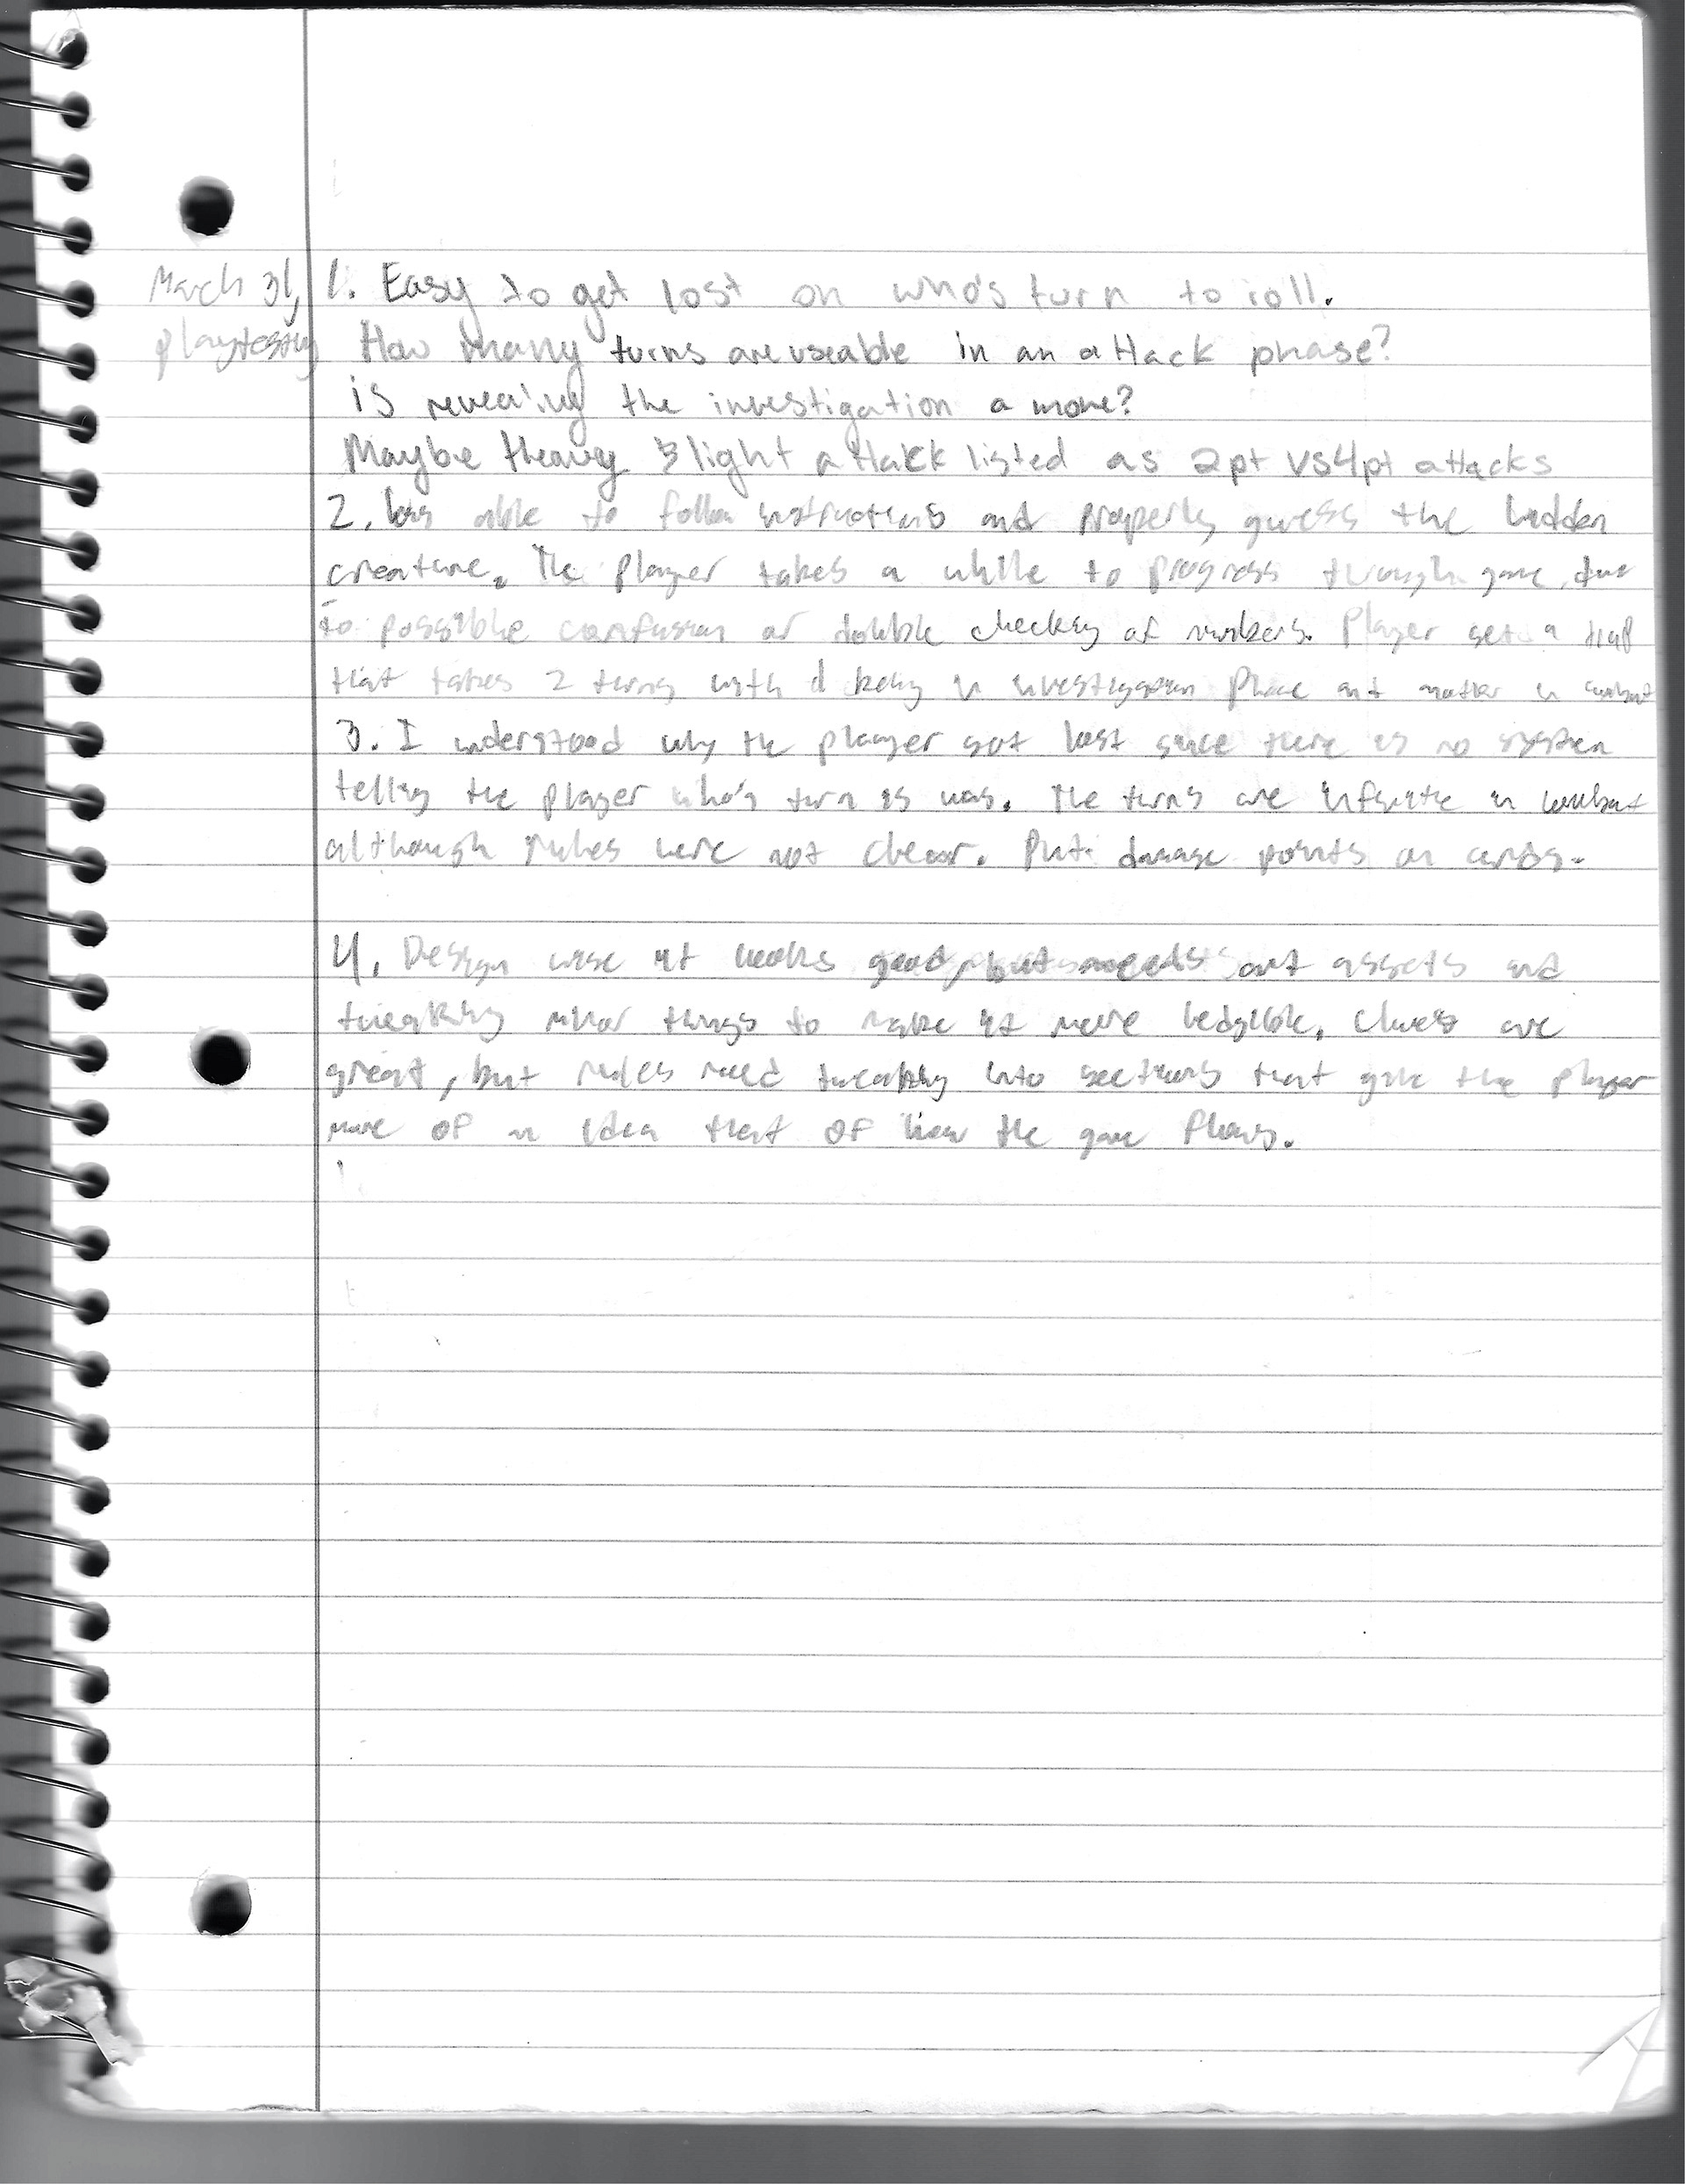 March 31,
playtesting
1. Easy to get lost on who's turn to roll.
How many turns are useable in an attack phase?
is revealing the investigation a move?
Maybe heavy & light attack listed as 2pt vs 4pt attacks
2. Was able to follow instructions and properly guess the hidden
creature. The player takes a while to progress through game due
to possible confusion or double checking of numbers. Player sets a trap
that takes 2 turns with 1 being in investigation phase and another in combat
3. I understood why the player got lost since there is no system
telling the player who's turn is was. The turns are infinite in combat
although rules were not clear. Put damage points on cards.
4. Design wise it looks good, but needs art assets and
tweaking minor things to make it more ledgible, clues are
great, but rules need tweaking into sections that give the player
more of an idea that of how the game flows.